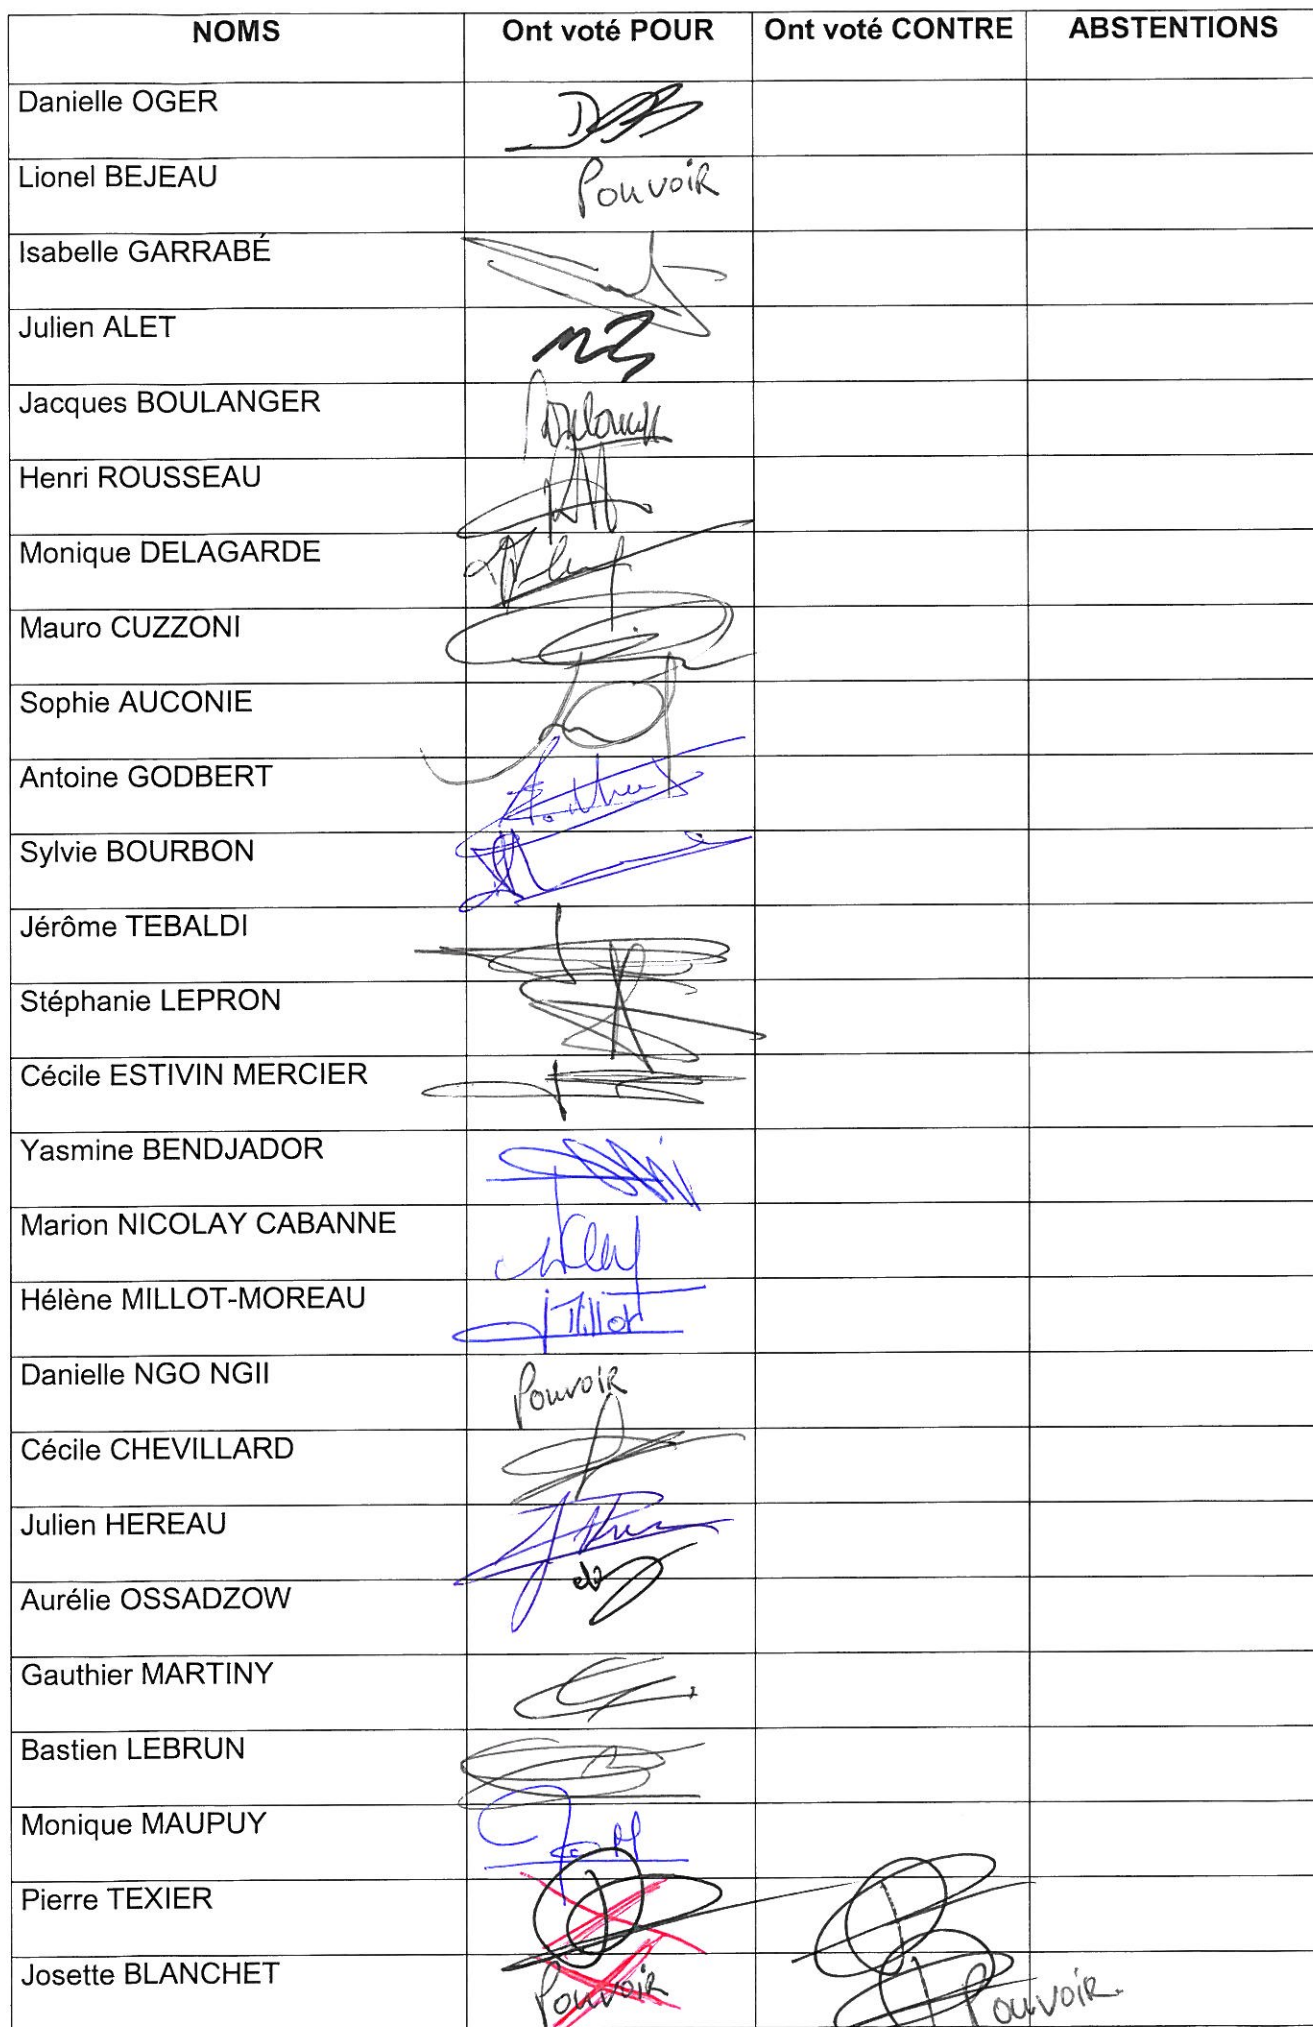 NOMS Ont voté POUR Ont voté CONTRE ABSTENTIONS
Danielle OGER
Lionel BEJEAU Pouvoir
Isabelle GARRABÉ
Julien ALET
Jacques BOULANGER
Henri ROUSSEAU
Monique DELAGARDE
Mauro CUZZONI
Sophie AUCONIE
Antoine GODBERT
Sylvie BOURBON
Jérôme TEBALDI
Stéphanie LEPRON
Cécile ESTIVIN MERCIER
Yasmine BENDJADOR
Marion NICOLAY CABANNE
Hélène MILLOT-MOREAU Millot
Danielle NGO NGII Pouvoir
Cécile CHEVILLARD
Julien HEREAU
Aurélie OSSADZOW
Gauthier MARTINY
Bastien LEBRUN
Monique MAUPUY
Pierre TEXIER
Josette BLANCHET Pouvoir Pouvoir.